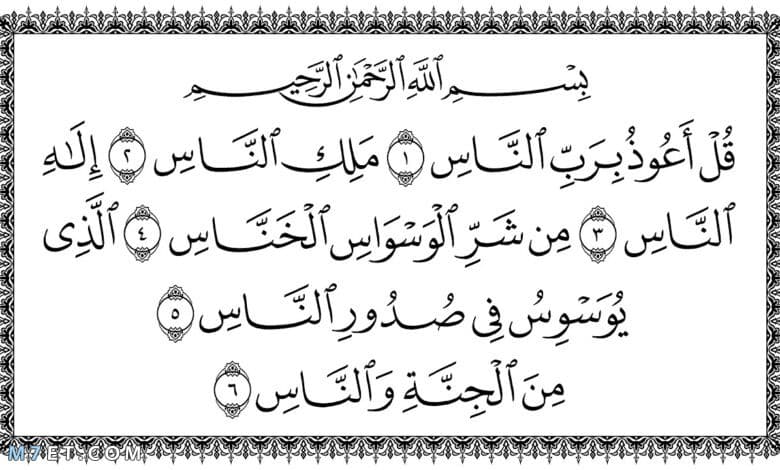 بِسْمِ ٱللَّهِ ٱلرَّحْمَٰنِ ٱلرَّحِيمِ
قُلْ أَعُوذُ بِرَبِّ ٱلنَّاسِ ١ مَلِكِ ٱلنَّاسِ ٢ إِلَٰهِ
ٱلنَّاسِ ٣ مِن شَرِّ ٱلْوَسْوَاسِ ٱلْخَنَّاسِ ٤ ٱلَّذِى
يُوَسْوِسُ فِى صُدُورِ ٱلنَّاسِ ٥
مِنَ ٱلْجِنَّةِ وَٱلنَّاسِ ٦
M7ET.COM